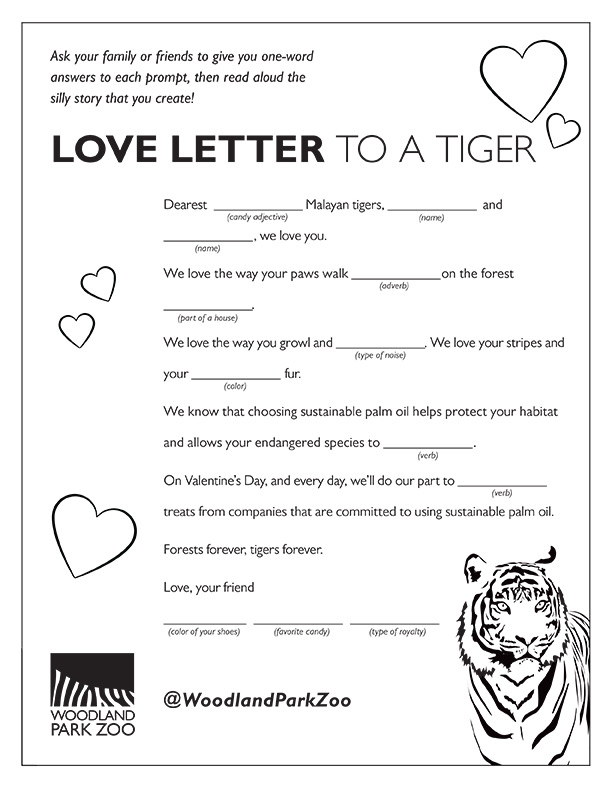 Ask your family or friends to give you one-word
answers to each prompt, then read aloud the
silly story that you create!
LOVE LETTER TO A TIGER
Dearest ____________ Malayan tigers, ____________ and
(candy adjective) (name)
____________, we love you.
(name)
We love the way your paws walk ____________ on the forest
(adverb)
____________.
(part of a house)
We love the way you growl and ____________. We love your stripes and
(type of noise)
your ____________ fur.
(color)
We know that choosing sustainable palm oil helps protect your habitat
and allows your endangered species to ____________.
(verb)
On Valentine's Day, and every day, we'll do our part to ____________
(verb)
treats from companies that are committed to using sustainable palm oil.
Forests forever, tigers forever.
Love, your friend
____________ ____________ ____________
(color of your shoes) (favorite candy) (type of royalty)
WOODLAND
PARK ZOO
@WoodlandParkZoo